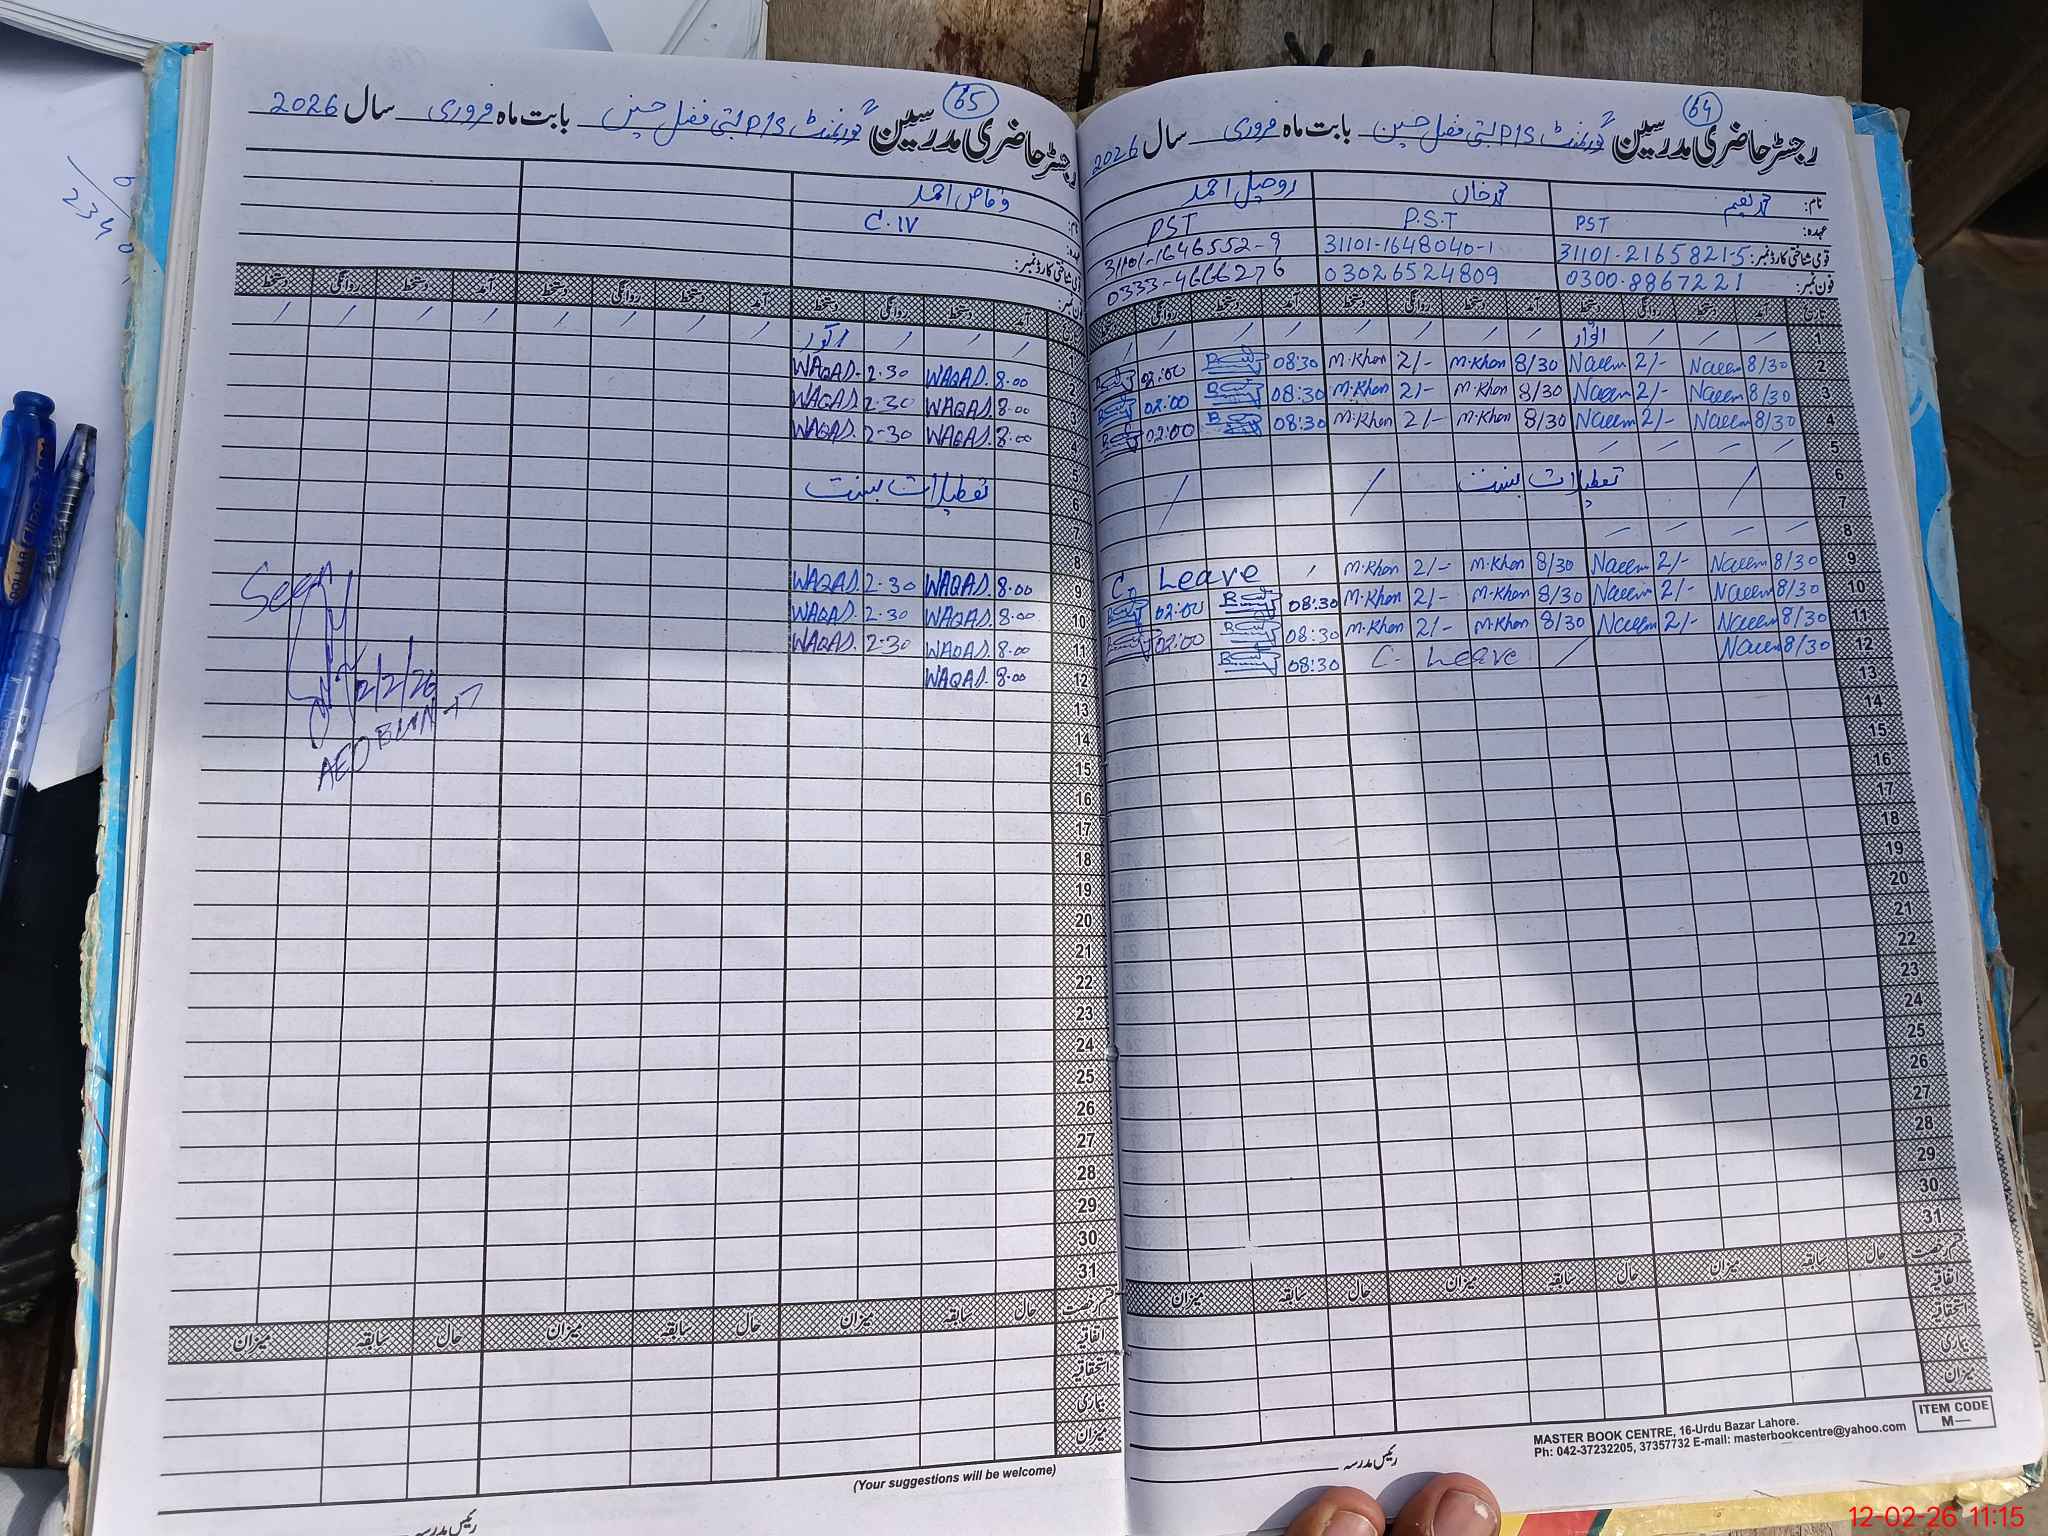 رجسٹر حاضری مدرسین گورنمنٹ P/S بستی فضل حسین بابت ماہ فروری سال 2026
64
نام: محمد نعیم محمد خاں روحیل احمد
عہدہ: PST P.S.T PST
قومی شناختی کارڈ نمبر: 31101-2165821-5 31101-1648040-1 31101-1646552-9
فون نمبر: 0300-8867221 03026524809 0333-4666276
تاریخ آمد دستخط روانگی دستخط آمد دستخط روانگی دستخط آمد دستخط روانگی دستخط
1 / / / اتوار / / / / / / / /
2 8/30 Naeem 2/- Naeem 8/30 M.Khan 2/- M.Khan 08:30 02:00
3 8/30 Naeem 2/- Naeem 8/30 M.Khan 2/- M.Khan 08:30 02:00
4 8/30 Naeem 2/- Naeem 8/30 M.Khan 2/- M.Khan 08:30 02:00
5 / / / /
6 / تعطیلات بسنت / /
7
8 / / / /
9 8/30 Naeem 2/- Naeem 8/30 M.Khan 2/- M.Khan / C. Leave
10 8/30 Naeem 2/- Naeem 8/30 M.Khan 2/- M.Khan 08:30 02:00
11 8/30 Naeem 2/- Naeem 8/30 M.Khan 2/- M.Khan 08:30 02:00
12 8/30 Naeem / C. Leave 08:30
13
14
15
16
17
18
19
20
21
22
23
24
25
26
27
28
29
30
31
قسم رخصت حال سابقہ میزان حال سابقہ میزان حال سابقہ میزان
اتفاقیہ
استحقاقیہ
بیماری
میزان
ITEM CODE
M—
MASTER BOOK CENTRE, 16-Urdu Bazar Lahore.
Ph: 042-37232205, 37357732 E-mail: masterbookcentre@yahoo.com
رئیس مدرسہ
رجسٹر حاضری مدرسین گورنمنٹ P/S بستی فضل حسین بابت ماہ فروری سال 2026
65
نام: وقاص احمد
عہدہ: C.IV
قومی شناختی کارڈ نمبر:
فون نمبر:
آمد دستخط روانگی دستخط آمد دستخط روانگی دستخط آمد دستخط روانگی دستخط
1 / / / اتوار / / / / / / / /
2 8.00 WAQAS. 2.30 WAQAS.
3 8.00 WAQAS. 2.30 WAQAS.
4 8.00 WAQAS. 2-30 WAQAS.
5
6 تعطیلات بسنت
7
8
9 8.00 WAQAS. 2.30 WAQAS.
10 8.00 WAQAS. 2.30 WAQAS.
11 8.00 WAQAS. 2.30 WAQAS.
12 8.00 WAQAS.
13
14
15
16
17
18
19
20
21
22
23
24
25
26
27
28
29
30
31
Seen
12/2/26
AEO
قسم رخصت حال سابقہ میزان حال سابقہ میزان حال سابقہ میزان
اتفاقیہ
استحقاقیہ
بیماری
میزان
(Your suggestions will be welcome)
رئیس مدرسہ
12-02-26 11:15